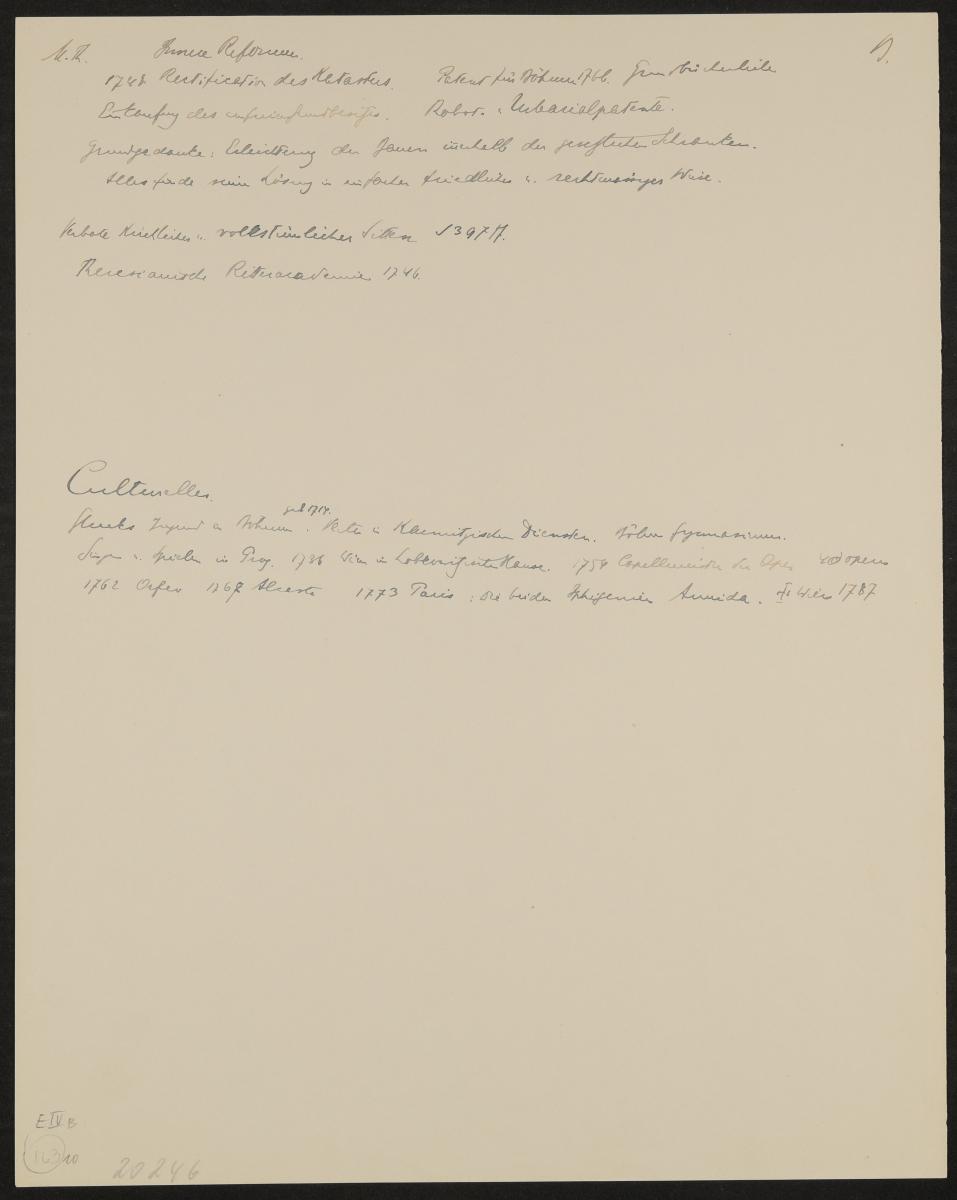 M. Th. Innere Reformen. 9.
1748 Rectification des Katasters. Patent für Böhmen 1766. Grundbücherliche
Entlaufung des Robot- u. Urbarialpatente.
Grundgedanke: Erleichterung der Bauern innerhalb der gesetzlichen Schranken.
Alles finde seine Lösung in einfacher friedlicher u. rechtmässiger Weise.
Verbote kirchlicher u. volkstümlicher Sitten S 397 ff.
Theresianische Ritteracademie 1746.
Culturelles.
geb 1714.
Glucks Jugend in Böhmen. Vater in Kaunitzischen Diensten. Gymnasium.
Singen u. spielen in Prag. 1736 Wien in Lobkowitz Hause. 1754 Capellmeister der Oper opern
1762 Orfeo 1767 Alceste 1773 Paris: die beiden Iphigenien Armida. Wien 1787
E IV B
163 10
20246